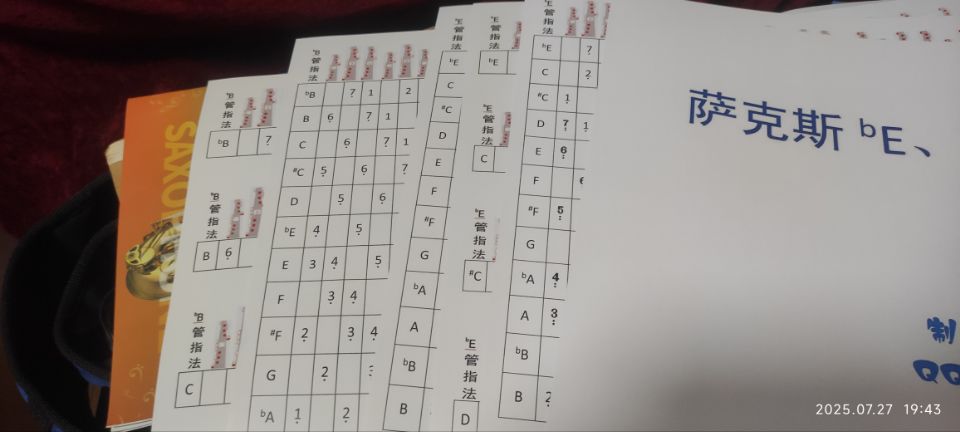 SAXO
ᵇB
管
指
法
ᵇB 7̣
ᵇB
管
指
法
B 6̣
ᵇB
管
指
法
C
ᵇB
管
指
法
ᵇB 7̣ 1 2
B 6̣ 7̣ 1
C 6̣ 7̣ 1
#C 5̣ 6̣ 7̣
D 5̣ 6̣
ᵇE 4̣ 5̣
E 3 4̣ 5̣
F 3̣ 4̣
#F 2̣ 3̣ 4̣
G 2̣
ᵇA 1̣ 2̣
ᵇE
管
指
法
ᵇE
C
#C
D
E
F
#F
G
ᵇA
A
ᵇB
B
ᵇE
管
指
法
ᵇE
ᵇE
管
指
法
C
ᵇE
管
指
法
#C
ᵇE
管
指
法
D
ᵇE
管
指
法
ᵇE 7̣
C 2̣
#C 1̣
D 7̣ 1̣
E 6̣
F
#F 5̣
G
ᵇA 4̣
A 3̣
ᵇB
B 2̣
萨克斯 ᵇE、
制
QQ
2025.07.27 19:43